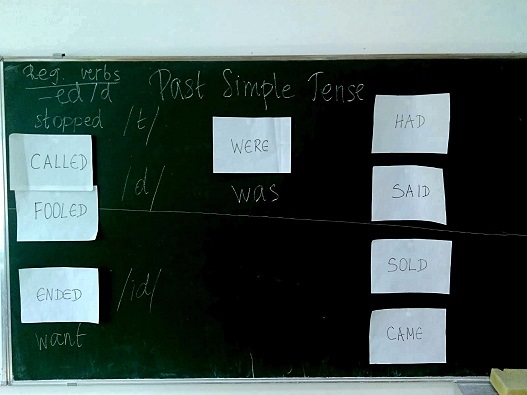 Reg. verbs
-ed/d
Past Simple Tense
stopped /t/
CALLED
/d/
FOOLED
ENDED /id/
want
WERE
was
HAD
SAID
SOLD
CAME